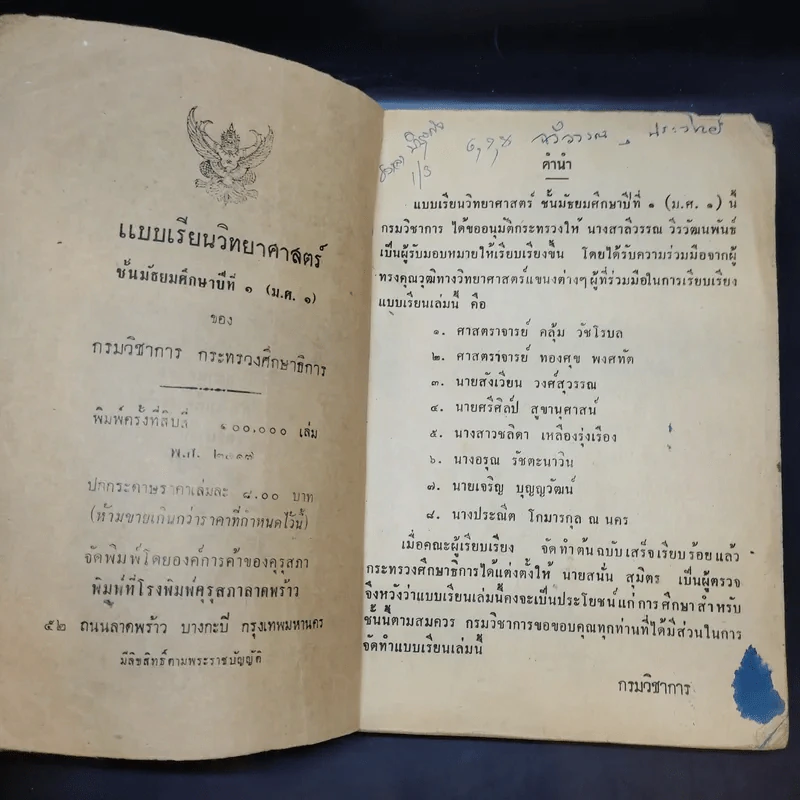 แบบเรียนวิทยาศาสตร์
ชั้นมัธยมศึกษาปีที่ ๑ (ม.ศ. ๑)
ของ
กรมวิชาการ กระทรวงศึกษาธิการ
พิมพ์ครั้งที่สิบสี่ ๑๐๐,๐๐๐ เล่ม
พ.ศ. ๒๕๑๗
ปกกระดาษราคาเล่มละ ๘.๐๐ บาท
(ห้ามขายเกินกว่าราคาที่กำหนดไว้นี้)
จัดพิมพ์โดยองค์การค้าของคุรุสภา
พิมพ์ที่โรงพิมพ์คุรุสภาลาดพร้าว
๕๒ ถนนลาดพร้าว บางกะปิ กรุงเทพมหานคร
มีลิขสิทธิ์ตามพระราชบัญญัติ
1/3
คำนำ
แบบเรียนวิทยาศาสตร์ ชั้นมัธยมศึกษาปีที่ ๑ (ม.ศ. ๑) นี้
กรมวิชาการ ได้ขออนุมัติกระทรวงให้ นางสาลีวรรณ วีรวัฒนพันธ์
เป็นผู้รับมอบหมายให้เรียบเรียงขึ้น โดยได้รับความร่วมมือจากผู้
ทรงคุณวุฒิทางวิทยาศาสตร์แขนงต่างๆ ผู้ที่ร่วมมือในการเรียบเรียง
แบบเรียนเล่มนี้ คือ
๑. ศาสตราจารย์ คลุ้ม วัชโรบล
๒. ศาสตราจารย์ ทองศุข พงศทัต
๓. นายสังเวียน วงศ์สุวรรณ
๔. นายศรีศิลป์ สูขานุศาสน์
๕. นางสาวชลิดา เหลืองรุ่งเรือง
๖. นางอรุณ รัชตะนาวิน
๗. นายเจริญ บุญญวัฒน์
๘. นางประณีต โกมารกุล ณ นคร
เมื่อคณะผู้เรียบเรียง จัดทำต้นฉบับเสร็จเรียบร้อยแล้ว
กระทรวงศึกษาธิการได้แต่งตั้งให้ นายสนั่น สุมิตร เป็นผู้ตรวจ
จึงหวังว่าแบบเรียนเล่มนี้คงจะเป็นประโยชน์แก่การศึกษาสำหรับ
ชั้นนี้ตามสมควร กรมวิชาการขอขอบคุณทุกท่านที่ได้มีส่วนในการ
จัดทำแบบเรียนเล่มนี้
กรมวิชาการ